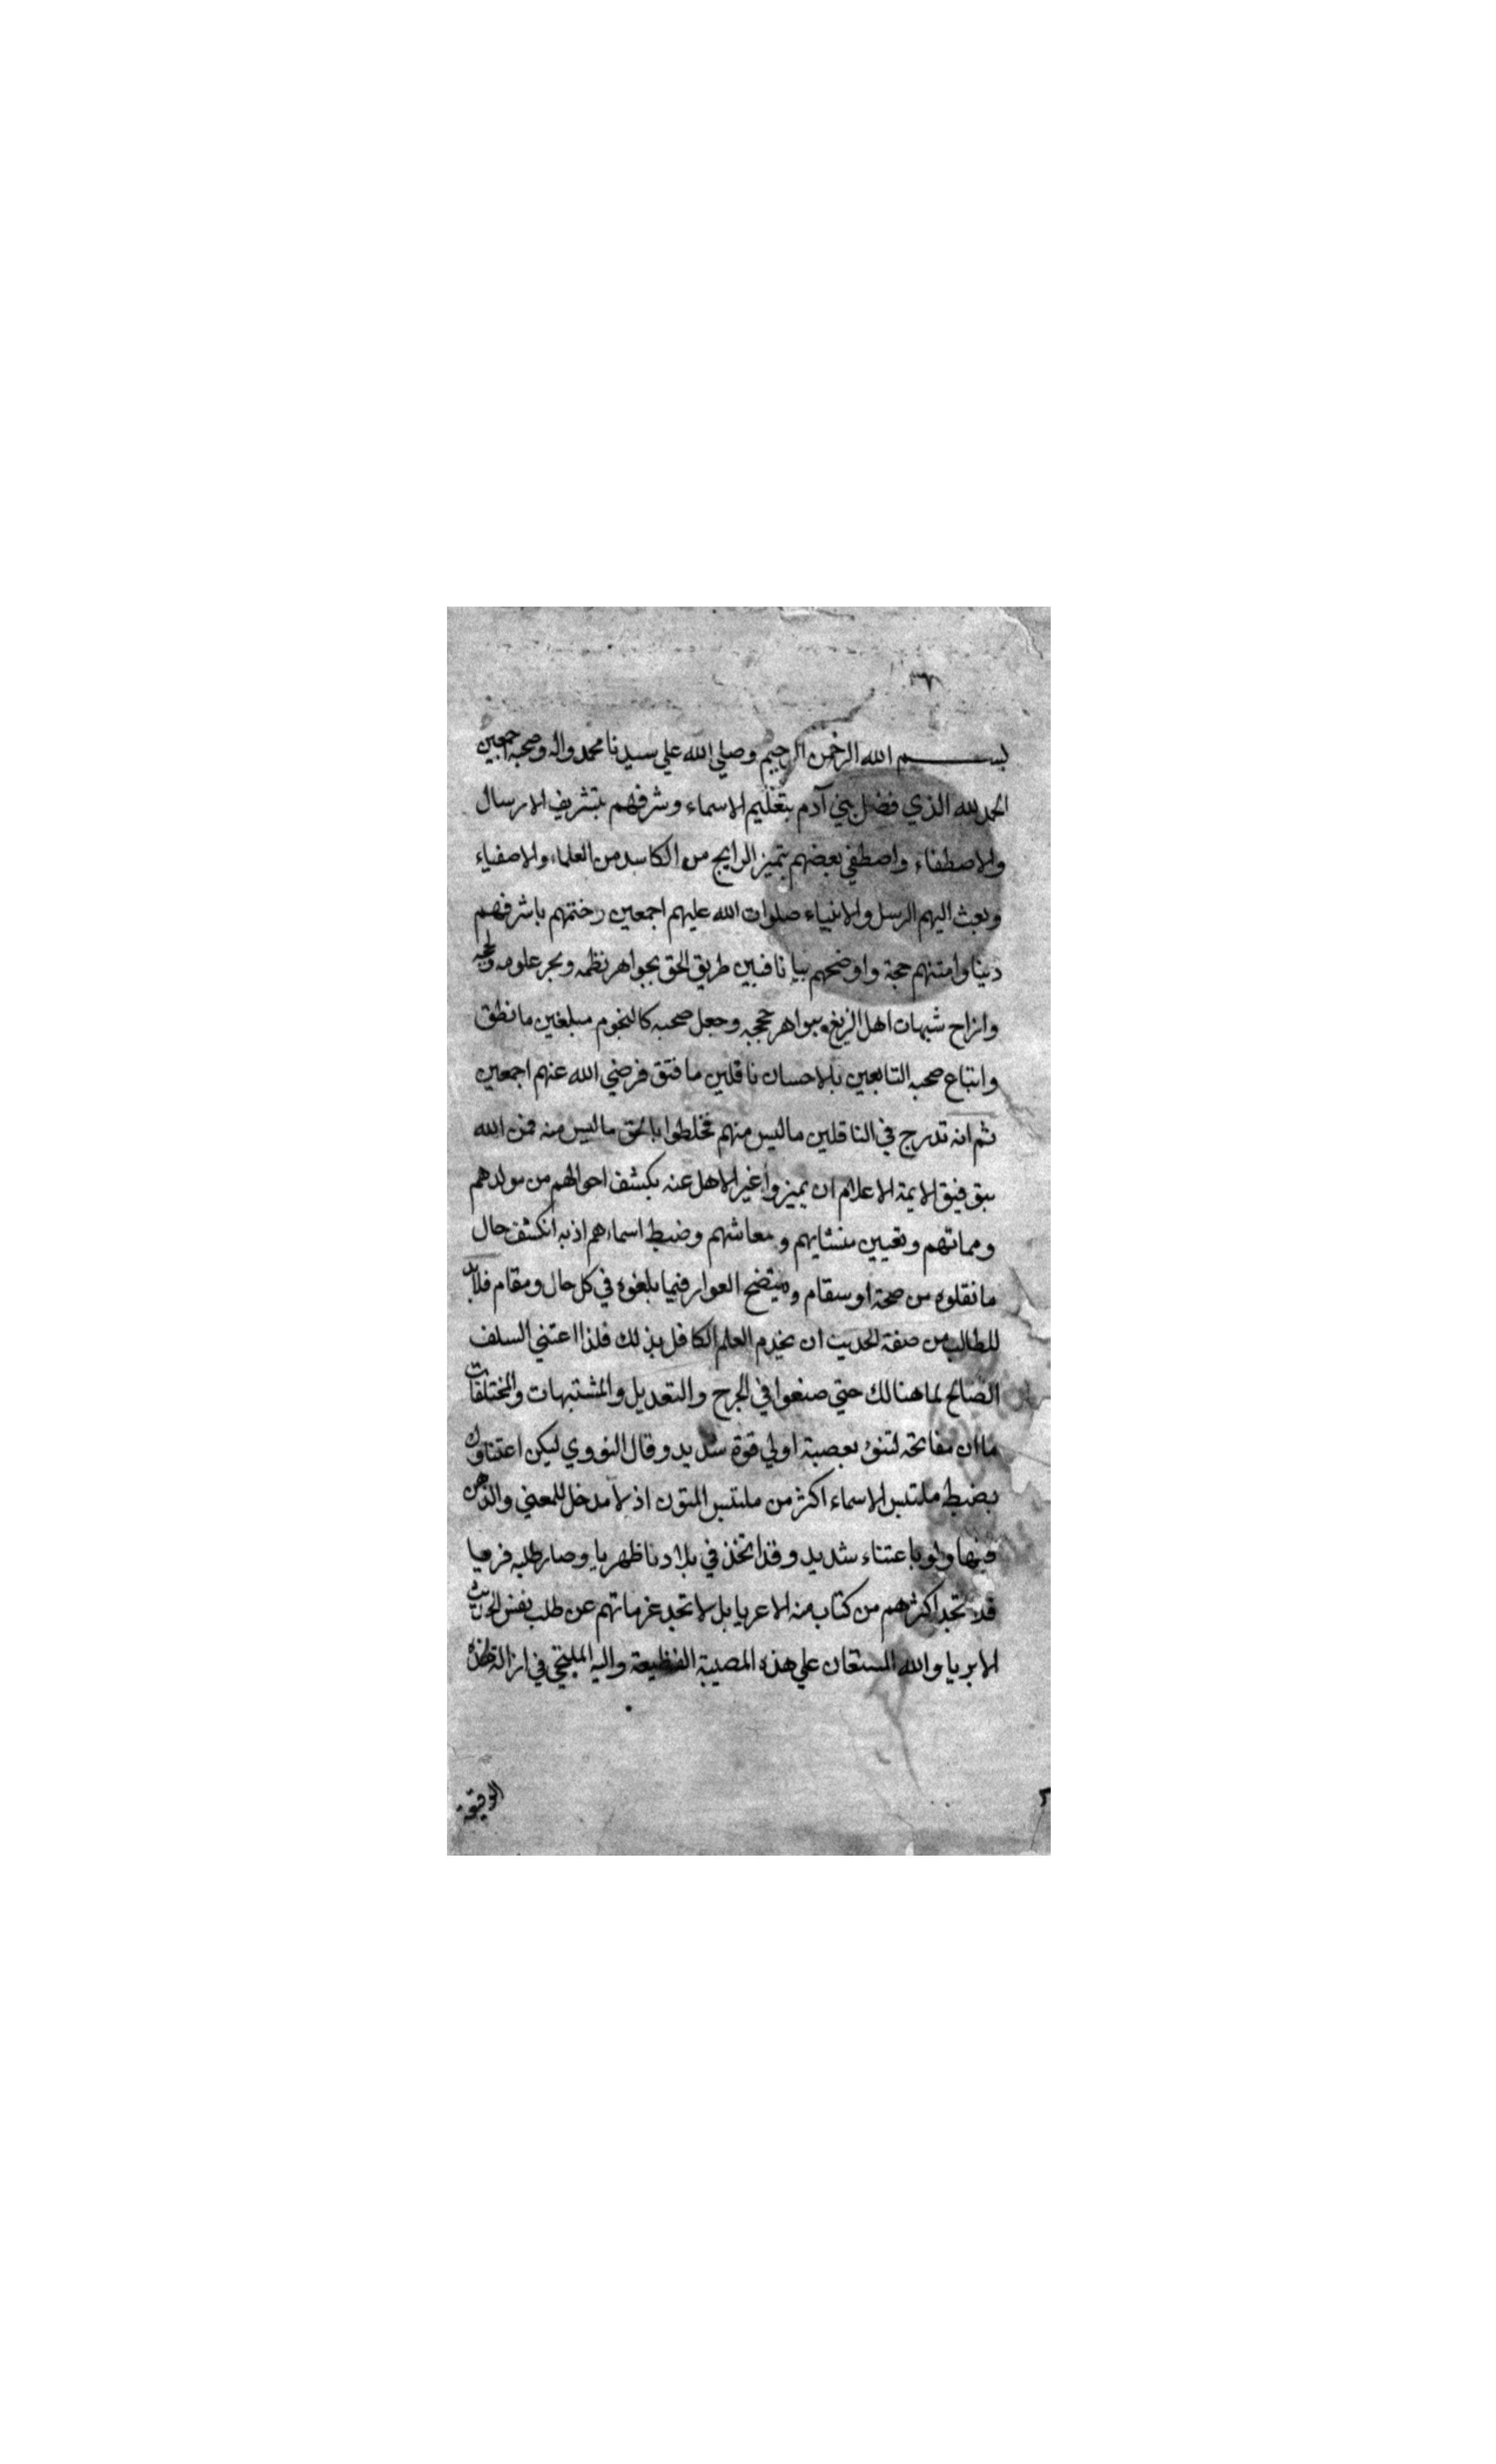 ٣٧
بسم الله الرحمن الرحيم وصلي الله علي سيدنا محمد واله وصحبه اجمعين
الحمد لله الذي فضل بني آدم بتعليم الاسماء وشرفهم بتشريف الارسال
والاصطفاء واصطفي بعضهم بتميز الرايج من الكاسد من العلماء والاصفياء
وبعث اليهم الرسل والانبياء صلوات الله عليهم اجمعين وختمهم باشرفهم
دينا وامتنهم حجة واوضحهم بيانا فبين طريق الحق بجواهر نظمه وبحر علومه
وانزاح شبهات اهل الزيغ ببواهر حججه وجعل صحبه كالنجوم مبلغين ما نطق
واتباع صحبه التابعين بالاحسان ناقلين ما فتق فرضي الله عنهم اجمعين
ثم انه تدرج في الناقلين ما ليس منهم فخلطوا بالحق ما ليس منه فمن الله
بتوفيق الايمة الاعلام ان يميزوا غير الاهل عنه بكشف احوالهم من مولدهم
ومماتهم وتعيين منشايهم ومعاشهم وضبط اسماءهم اذ به انكشف حال
ما نقلوه من صحة او سقام ويتضح العوار فيما بلغوه في كل حال ومقام فلابد
للطالب من صفة الحديث ان يخدم العلم الكافل بذلك فلذا اعتني السلف
الصالح لما هنالك حتي صنفوا في الجرح والتعديل والمشتبهات والمختلفات
ما ان مفاتحه لتنوء بعصبة اولي قوة شديد وقال النووي ليكن اعتناؤك
بضبط ملتبس الاسماء اكثر من ملتبس المتون اذ لا مدخل للمعني والذهن
فيها ولو باعتناء شديد وقد اتخذ في بلادنا ظهريا وصار طلبه فريا
فلا تجد اكثرهم من كتاب منه الا عريا بل لا تجد عزماتهم عن طلب نفس الحديث
الا بريا والله المستعان علي هذه المصيبة الفظيعة واليه الملتجي في ازالة هذه
الوقيعة